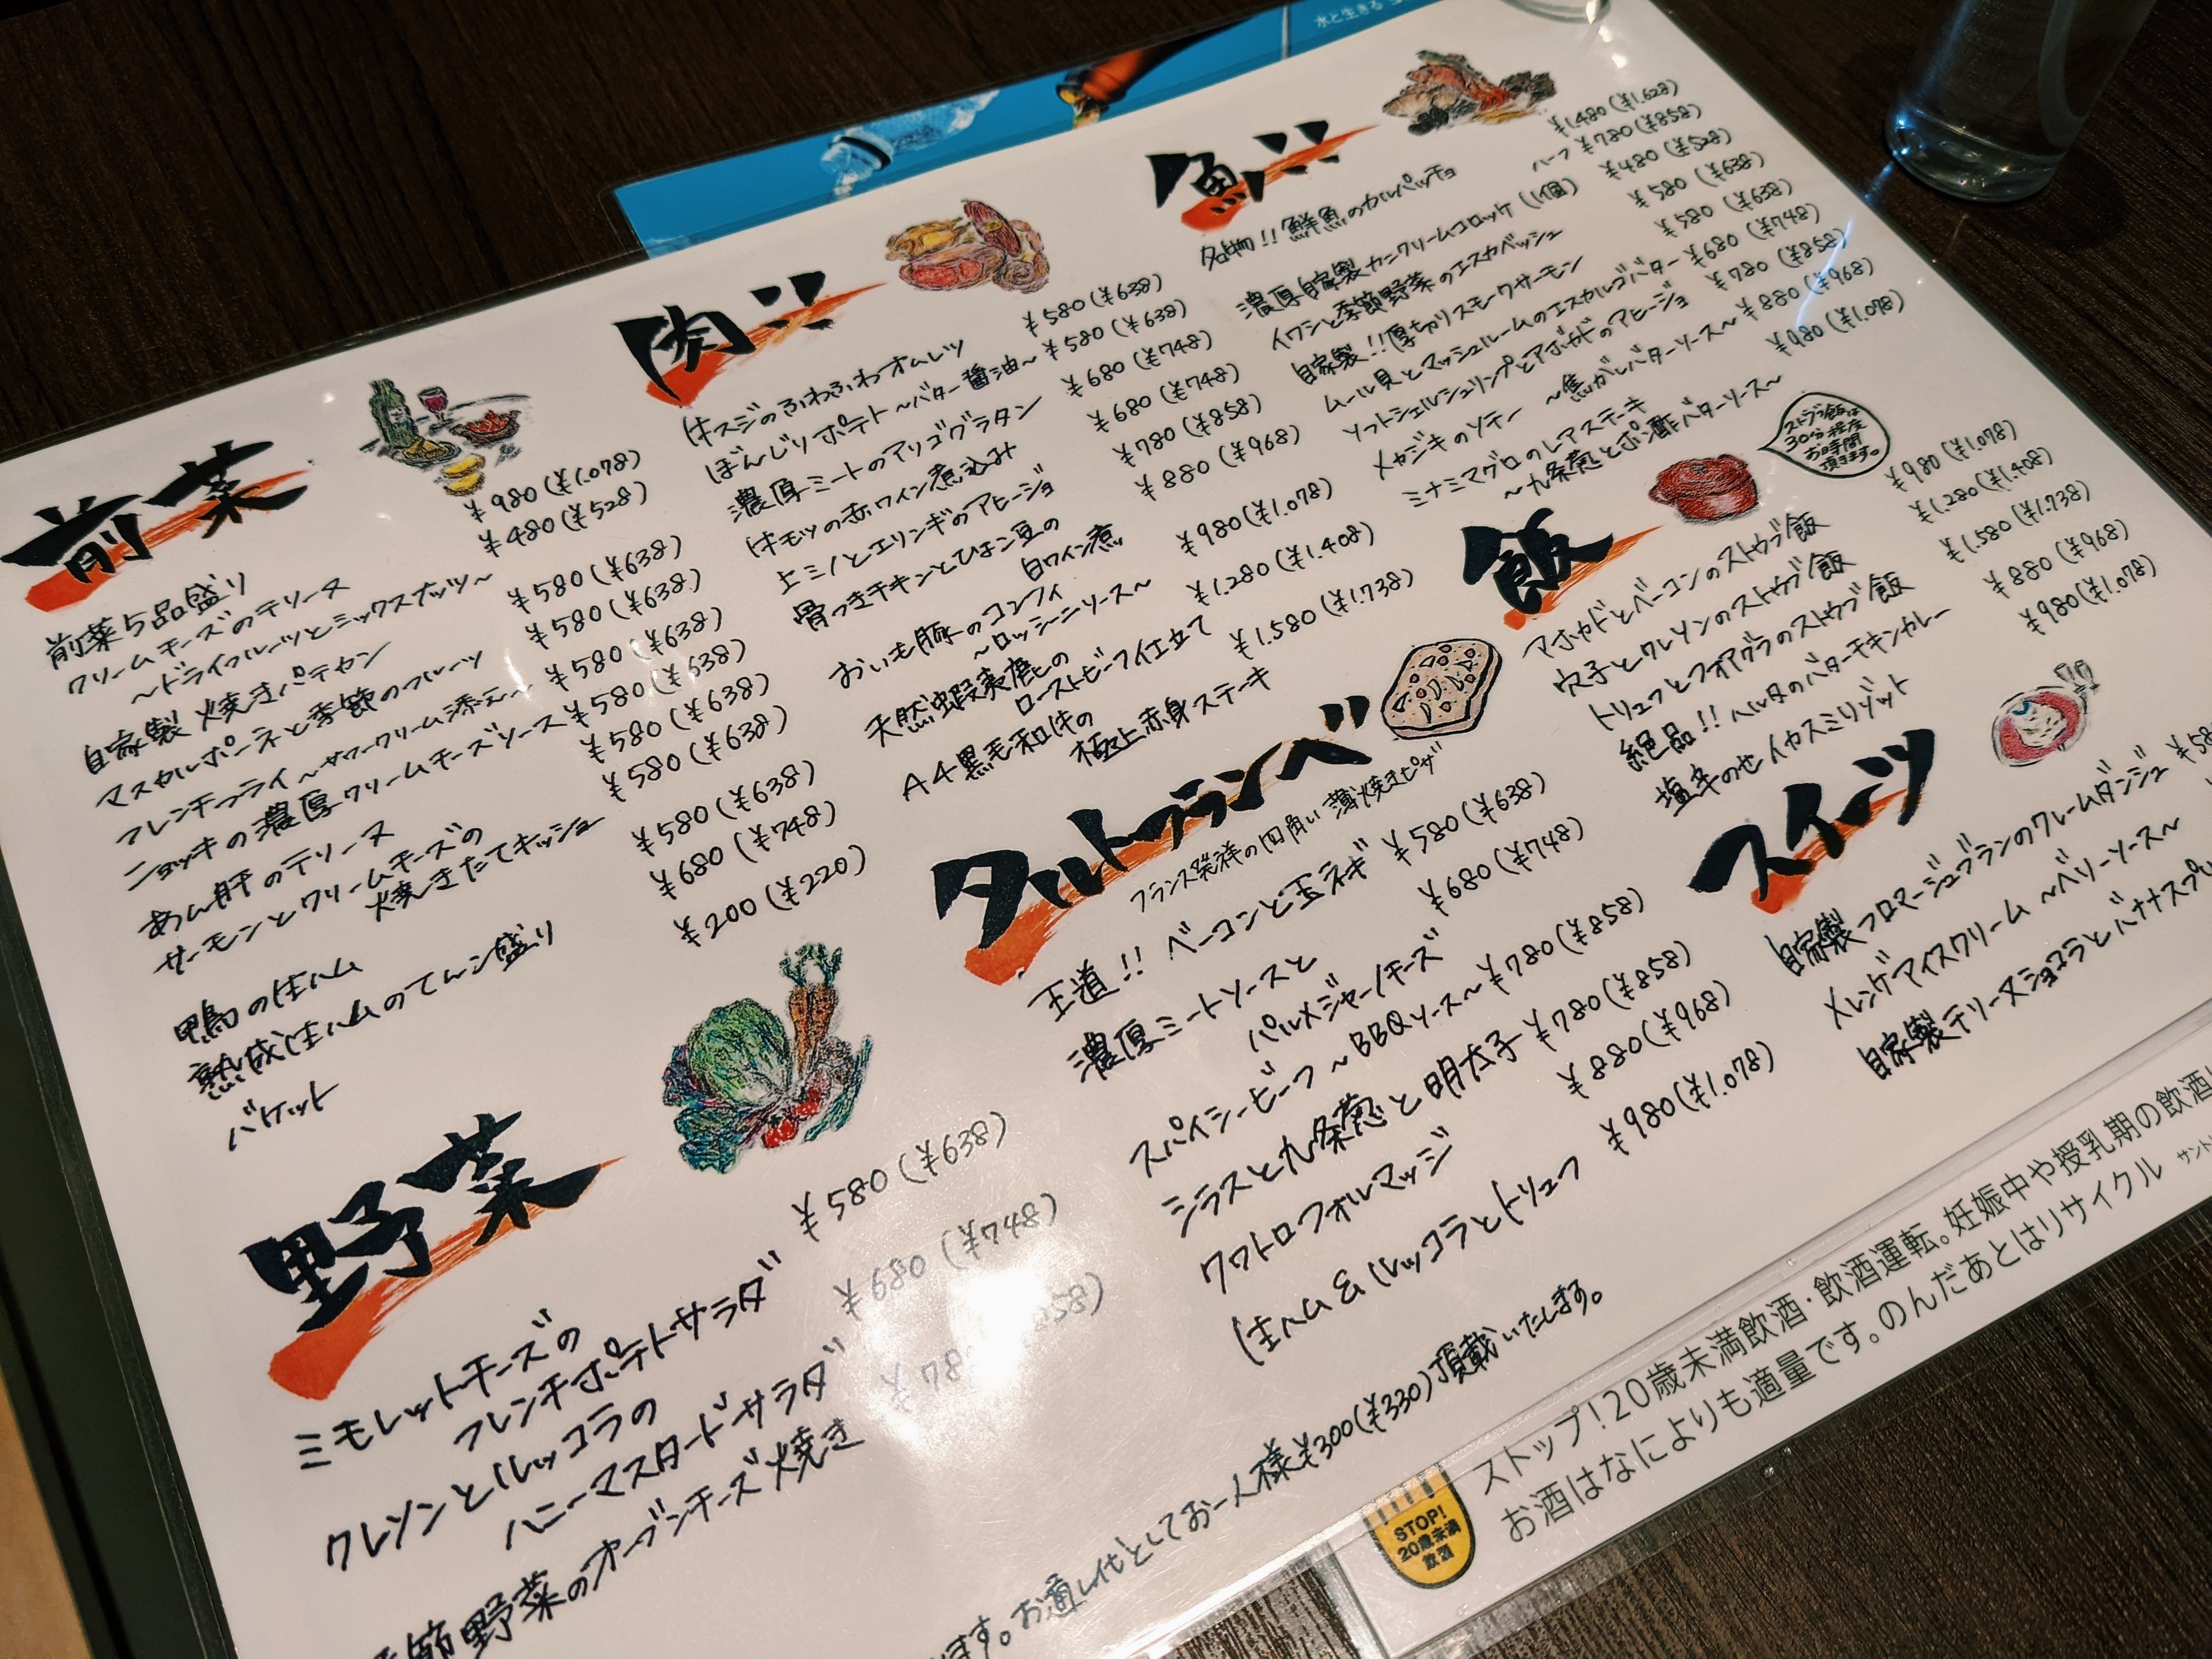 水と生きる
前菜
前菜5品盛り ¥980(¥1.078)
クリームチーズのテリーヌ ¥480(¥528)
～ドライフルーツとミックスナッツ～
自家製 焼きパテカン ¥580(¥638)
マスカルポーネと季節のフルーツ ¥580(¥638)
フレンチフライ～サワークリーム添え～ ¥580(¥638)
ニョッキの濃厚クリームチーズソース ¥580(¥638)
あん肝のテリーヌ ¥580(¥638)
サーモンとクリームチーズの
焼きたてキッシュ ¥580(¥638)
鴨の生ハム ¥580(¥638)
熟成生ハムのてんこ盛り ¥680(¥748)
バケット ¥200(¥220)
野菜
ミモレットチーズの
フレンチポテトサラダ ¥580(¥638)
クレソンとルッコラの
ハニーマスタードサラダ ¥680(¥748)
季節野菜のオーブンチーズ焼き
肉
牛スジのふわふわオムレツ ¥580(¥638)
ぼんじりポテト～バター醤油～ ¥580(¥638)
濃厚ミートのアリゴグラタン ¥680(¥748)
牛モツの赤ワイン煮込み ¥680(¥748)
上ミノとエリンギのアヒージョ ¥780(¥858)
骨つきチキンとひよこ豆の
白ワイン煮 ¥880(¥968)
おいも豚のコンフィ
～ロッシーニソース～ ¥980(¥1.078)
天然蝦夷鹿の
ローストビーフ仕立て ¥1.280(¥1.408)
A4黒毛和牛の
極上赤身ステーキ ¥1.580(¥1.738)
タルトフランベ
フランス発祥の四角い薄焼きピザ
王道!! ベーコンと玉ネギ ¥580(¥638)
濃厚ミートソースと
パルメジャーノチーズ ¥680(¥748)
スパイシービーフ～BBQソース～ ¥780(¥858)
シラスと九条葱と明太子 ¥780(¥858)
クワトロフォルマッジ ¥880(¥968)
生ハム&ルッコラとトリュフ ¥980(¥1.078)
魚
名物!!鮮魚のカルパッチョ ¥1.480(¥1.628)
ハーフ ¥780(¥858)
濃厚自家製カニクリームコロッケ(1個) ¥480(¥528)
イワシと季節野菜のエスカベッシュ ¥580(¥638)
自家製!!厚切りスモークサーモン ¥580(¥638)
ムール貝とマッシュルームのエスカルゴバター ¥680(¥748)
ソフトシェルシュリンプとアボカドのアヒージョ ¥780(¥858)
メカジキのソテー ～焦がしバターソース～ ¥880(¥968)
ミナミマグロのレアステーキ ¥980(¥1.078)
～九条葱とポン酢バターソース～
飯
ストウブ飯は
30分程度
お時間
頂きます。
アボカドとベーコンのストウブ飯 ¥980(¥1.078)
穴子とクレソンのストウブ飯 ¥1.280(¥1.408)
トリュフとフォアグラのストウブ飯 ¥1.580(¥1.738)
絶品!! ヘルタのバターチキンカレー ¥880(¥968)
塩辛のせイカスミリゾット ¥980(¥1.078)
スイーツ
自家製フロマージュブランのクレームダンジュ
メレンゲアイスクリーム ～ベリーソース～
自家製テリーヌショコラとバナナスプ
ます。お通し代としてお一人様¥300(¥330)頂戴いたします。
STOP!
20歳未満
飲酒
ストップ!20歳未満飲酒・飲酒運転。妊娠中や授乳期の飲酒
お酒はなによりも適量です。のんだあとはリサイクル